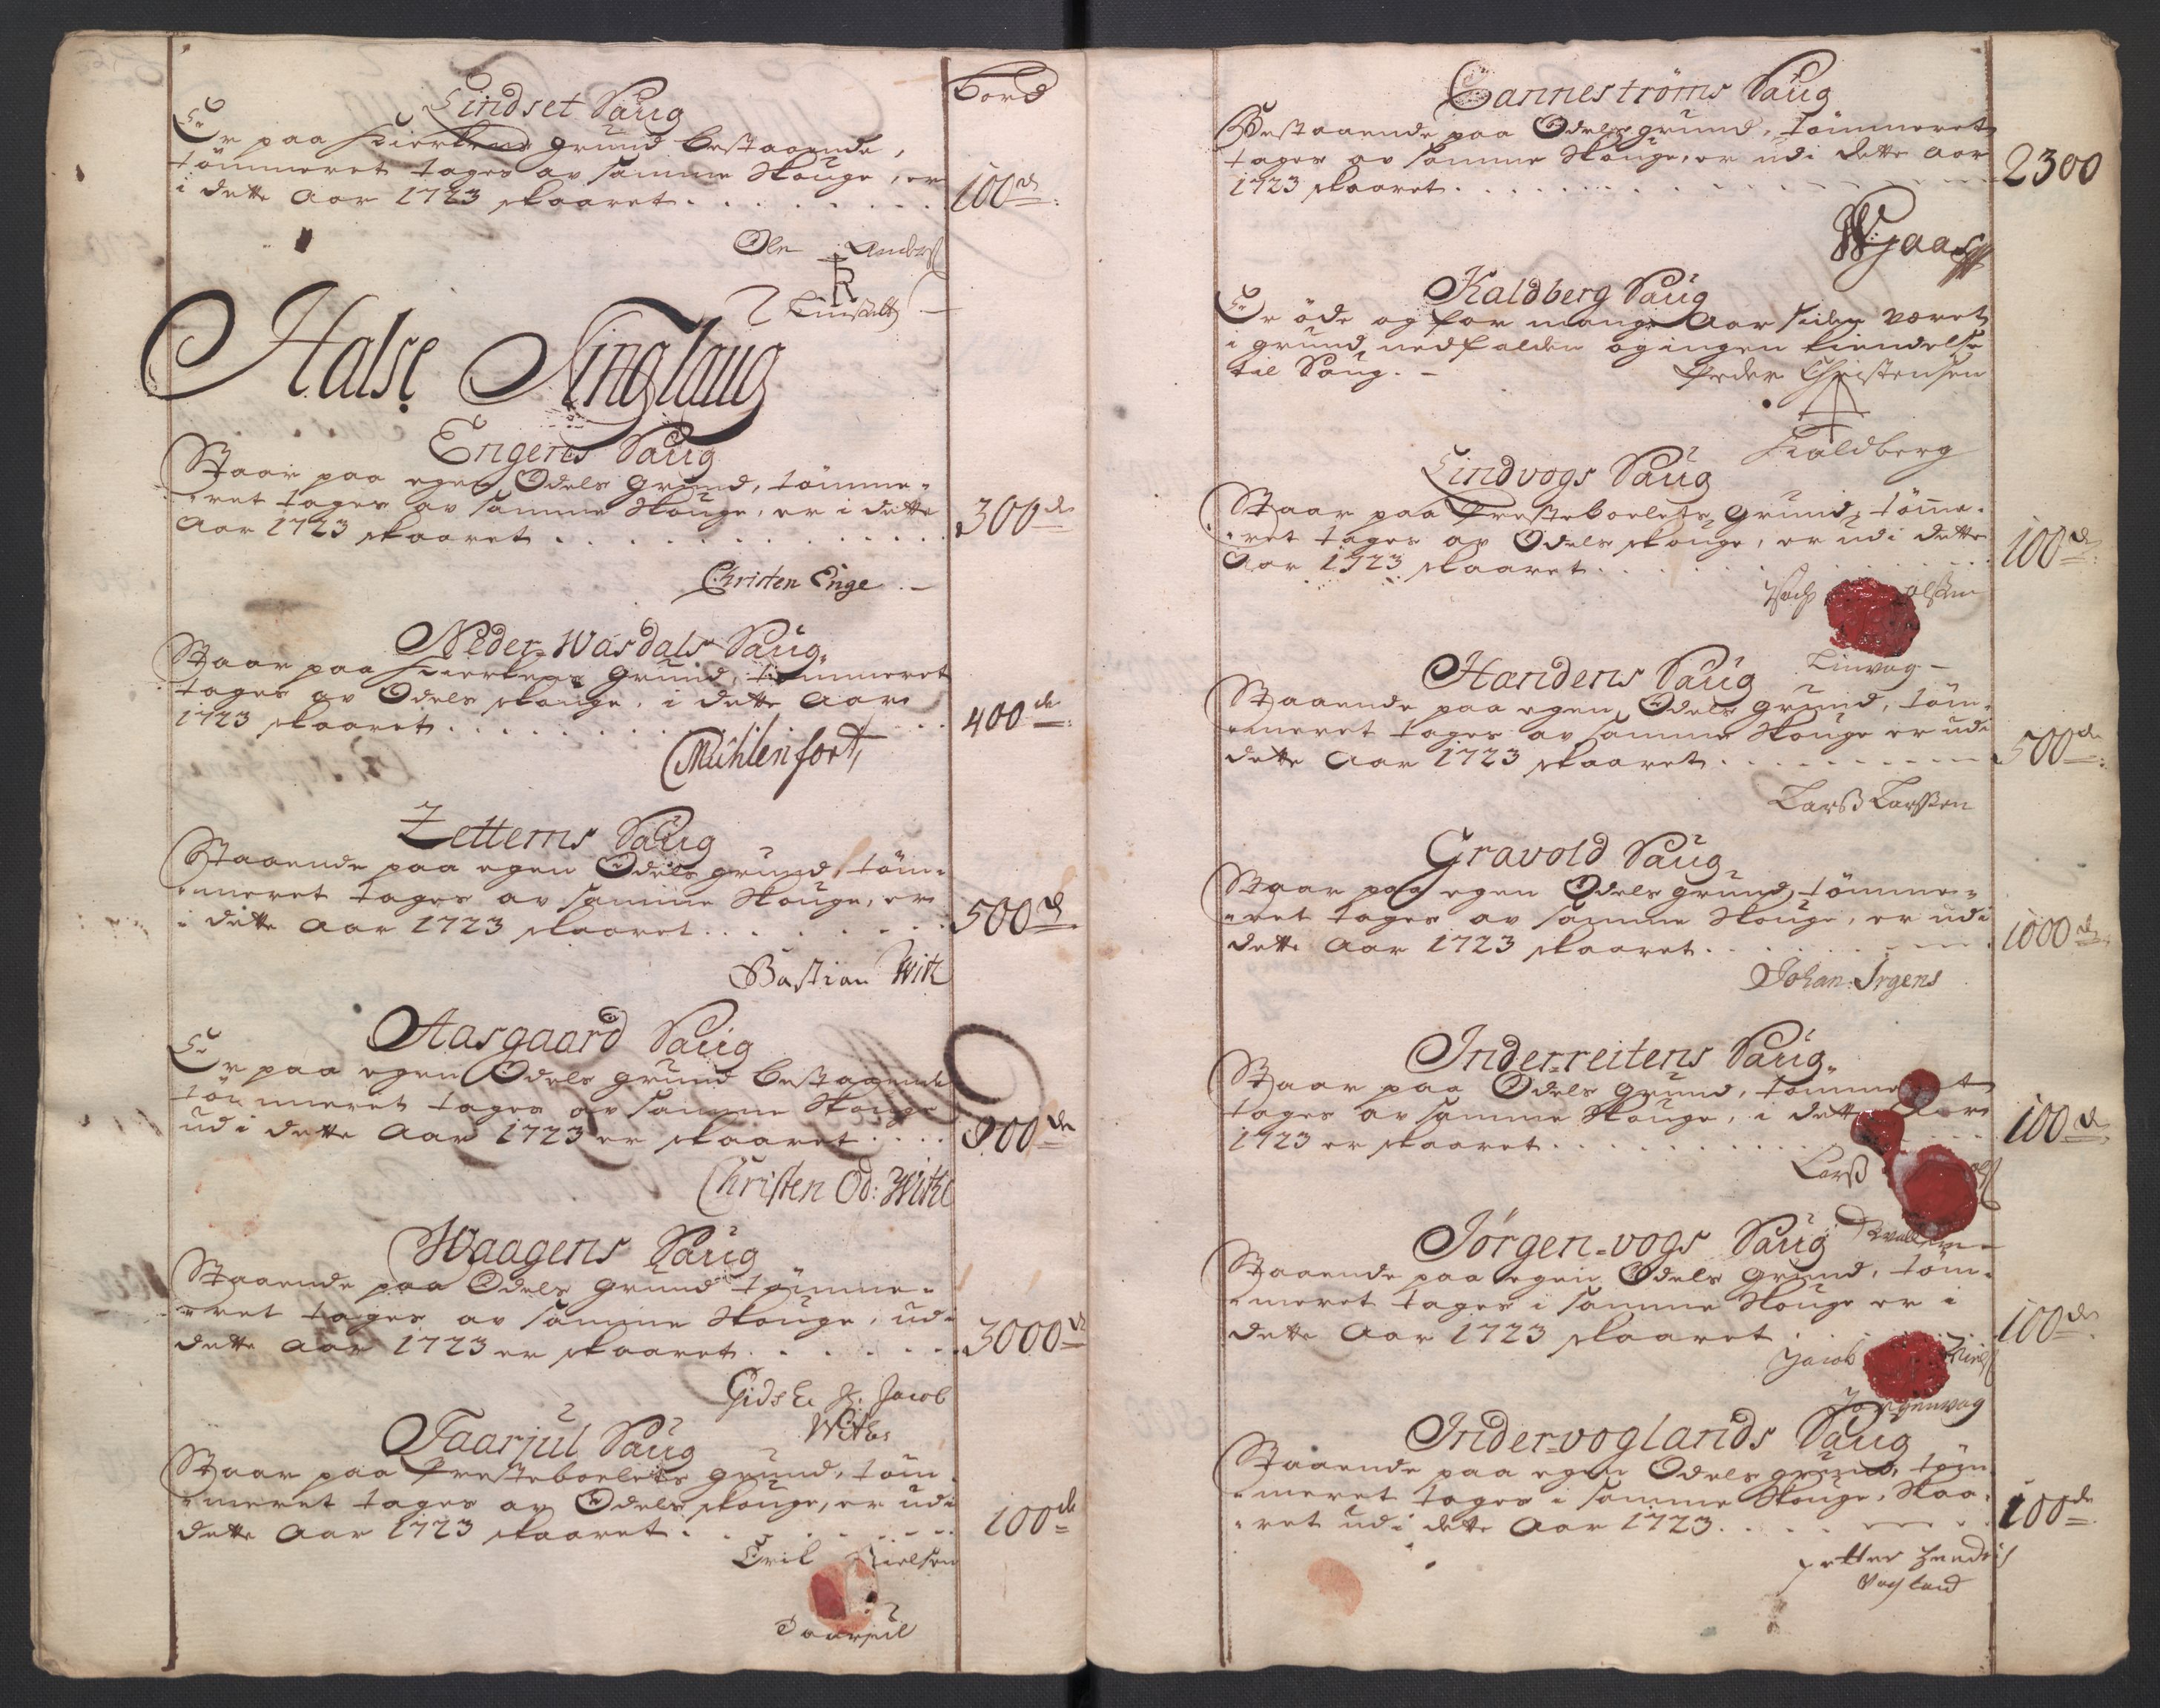 Bord
Lindset Saug
Er paa Kierkens grund bestaaende,
tömmeret tages av samme Skouge, er
i dette Aar 1723 skaaret . . . . . . . . . 100 de
Ole Anders
R
Halse Tinglaug
Engens Saug
Staar paa egen Odels grund, tömme-
ret tages av samme Skouge, er i dette
Aar 1723 skaaret . . . . . . . . . . . . 300 de
Christen Enge
Neder-Wasdals Saug
Staar paa Kierkens Grund, tömmeret
tages av Odels skouge, i dette Aar
1723 skaaret . . . . . . . . . 400 de
Mühlenfort
Zetterns Saug
Staaende paa egen Odels grund, töm-
meret tages av samme Skouge, er
i dette Aar 1723 skaaret . . . . . . . . 500 de
Bastian With
Aasgaard Saug
Er paa egen Odels grund bestaaende
tömmeret tages av samme Skouge
udi dette Aar 1723 er skaaret . . . . 900 de
Christen Od: With
Waagens Saug
Staaende paa Odels Grund tömme-
ret tages av samme Skouge, udi
dette Aar 1723 er skaaret . . . . . . . 3000 de
Jacob
Withes
Taarjul Saug
Staar paa Presteboelets grund, töm-
meret tages av Odels skouge, er udi
dette Aar 1723 skaaret . . . . . . . . 100 de
Eril Nielsen
Taarjul
Canneströms Saug
Bestaaende paa Odels grund, tömmeret
tages av samme Skouge, er udi dette Aar
1723 skaaret . . . . . . . . . . . 2300
Kaldberg Saug
Er öde og for mange Aar siden været
i grund nedfalden og ingen kiendelse
til Saug. -
Peder Christensen
Kaldberg
Lindvogs Saug
Staar paa Presteboelets Grund, tömme-
ret tages av Odels skouge, er udi dette
Aar 1723 skaaret . . . . . . . . . 100 de
olssen
Linvog
Handens Saug
Staaende paa egen Odels grund, töm-
meret tages av samme Skouge er udi
dette Aar 1723 skaaret . . . . . . . . . 500 de
Larss Larssen
Gravold Saug
Staar paa egen Odels grund, tömme-
ret tages av samme Skouge, er udi
dette Aar 1723 skaaret . . . . . . . . 1000 de
Johan: Irgens
Inder-reitens Saug
Staar paa Odels Grund, tömmeret
tages av samme Skouge, i dette Aar
1723 er skaaret . . . . . . . . . . 100 de
Larss
Jörgen-vogs Saug
Staaende paa egen Odels Grund, töm-
meret tages i samme Skouge er i
dette Aar 1723 skaaret . . . . . 100 de
Jacob Niels
Jörgenvog
Inder-voglands Saug
Staaende paa egen Odels grund, töm-
meret tages i samme Skouge, skaa-
ret udi dette Aar 1723. . . . . . . . 100 de
petter
Vogland